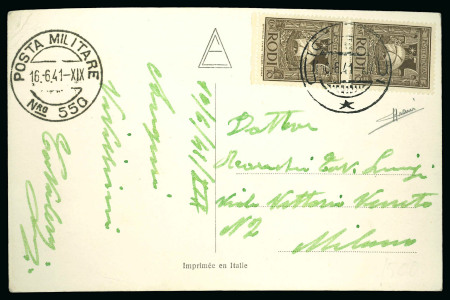 POSTA MILITARE
16.6.41-XIX
A
NRO 550
RODI
RODI
6.41
16/6/41/XIX
Auguri
Vivissimi
Dottor
Cav. Luigi
Viale Vittorio Veneto
N2
Milano
Imprimée en Italie